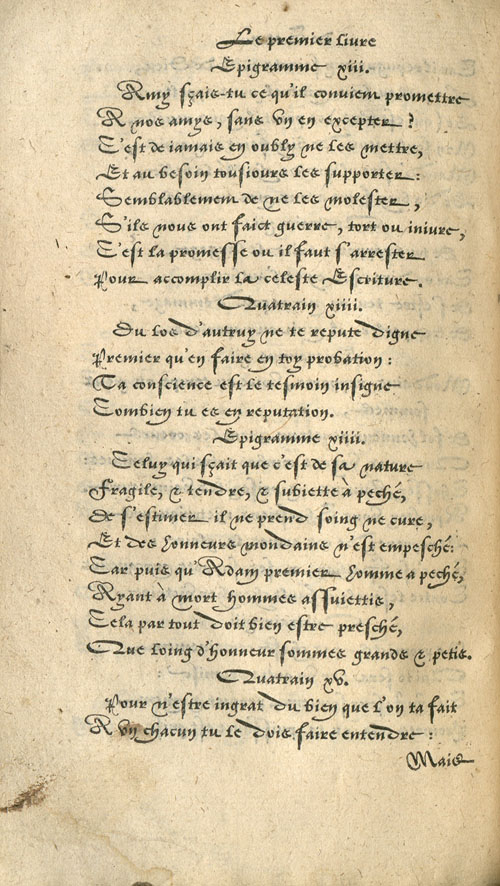 Le premier liure
Epigramme xiii.
Amy sçais-tu ce qu'il conuient promettre
A nos amys, sans vn en excepter ?
C'est de iamais en oubly ne les mettre,
Et au besoin tousiours les supporter :
Semblablement de ne les molester,
S'ils nous ont faict guerre, tort ou iniure,
C'est la promesse ou il faut s'arrester
Pour accomplir la celeste Escriture.
Quatrain xiiii.
Du los d'autruy ne te repute digne
Premier qu'en faire en toy probation :
Ta conscience est le tesmoin insigne
Combien tu es en reputation.
Epigramme xiiii.
Celuy qui sçait que c'est de sa nature
Fragile, & tendre, & subiette à peché,
De s'estimer il ne prend soing ne cure,
Et des honneurs mondains n'est empesché:
Car puis qu'Adam premier homme a peché,
Ayant à mort hommes assuiettis,
Cela par tout doit bien estre presché,
Que loing d'honneur sommes grands & petis.
Quatrain xv.
Pour n'estre ingrat du bien que l'on ta fait
A vn chacun tu le dois faire entendre :
Mais